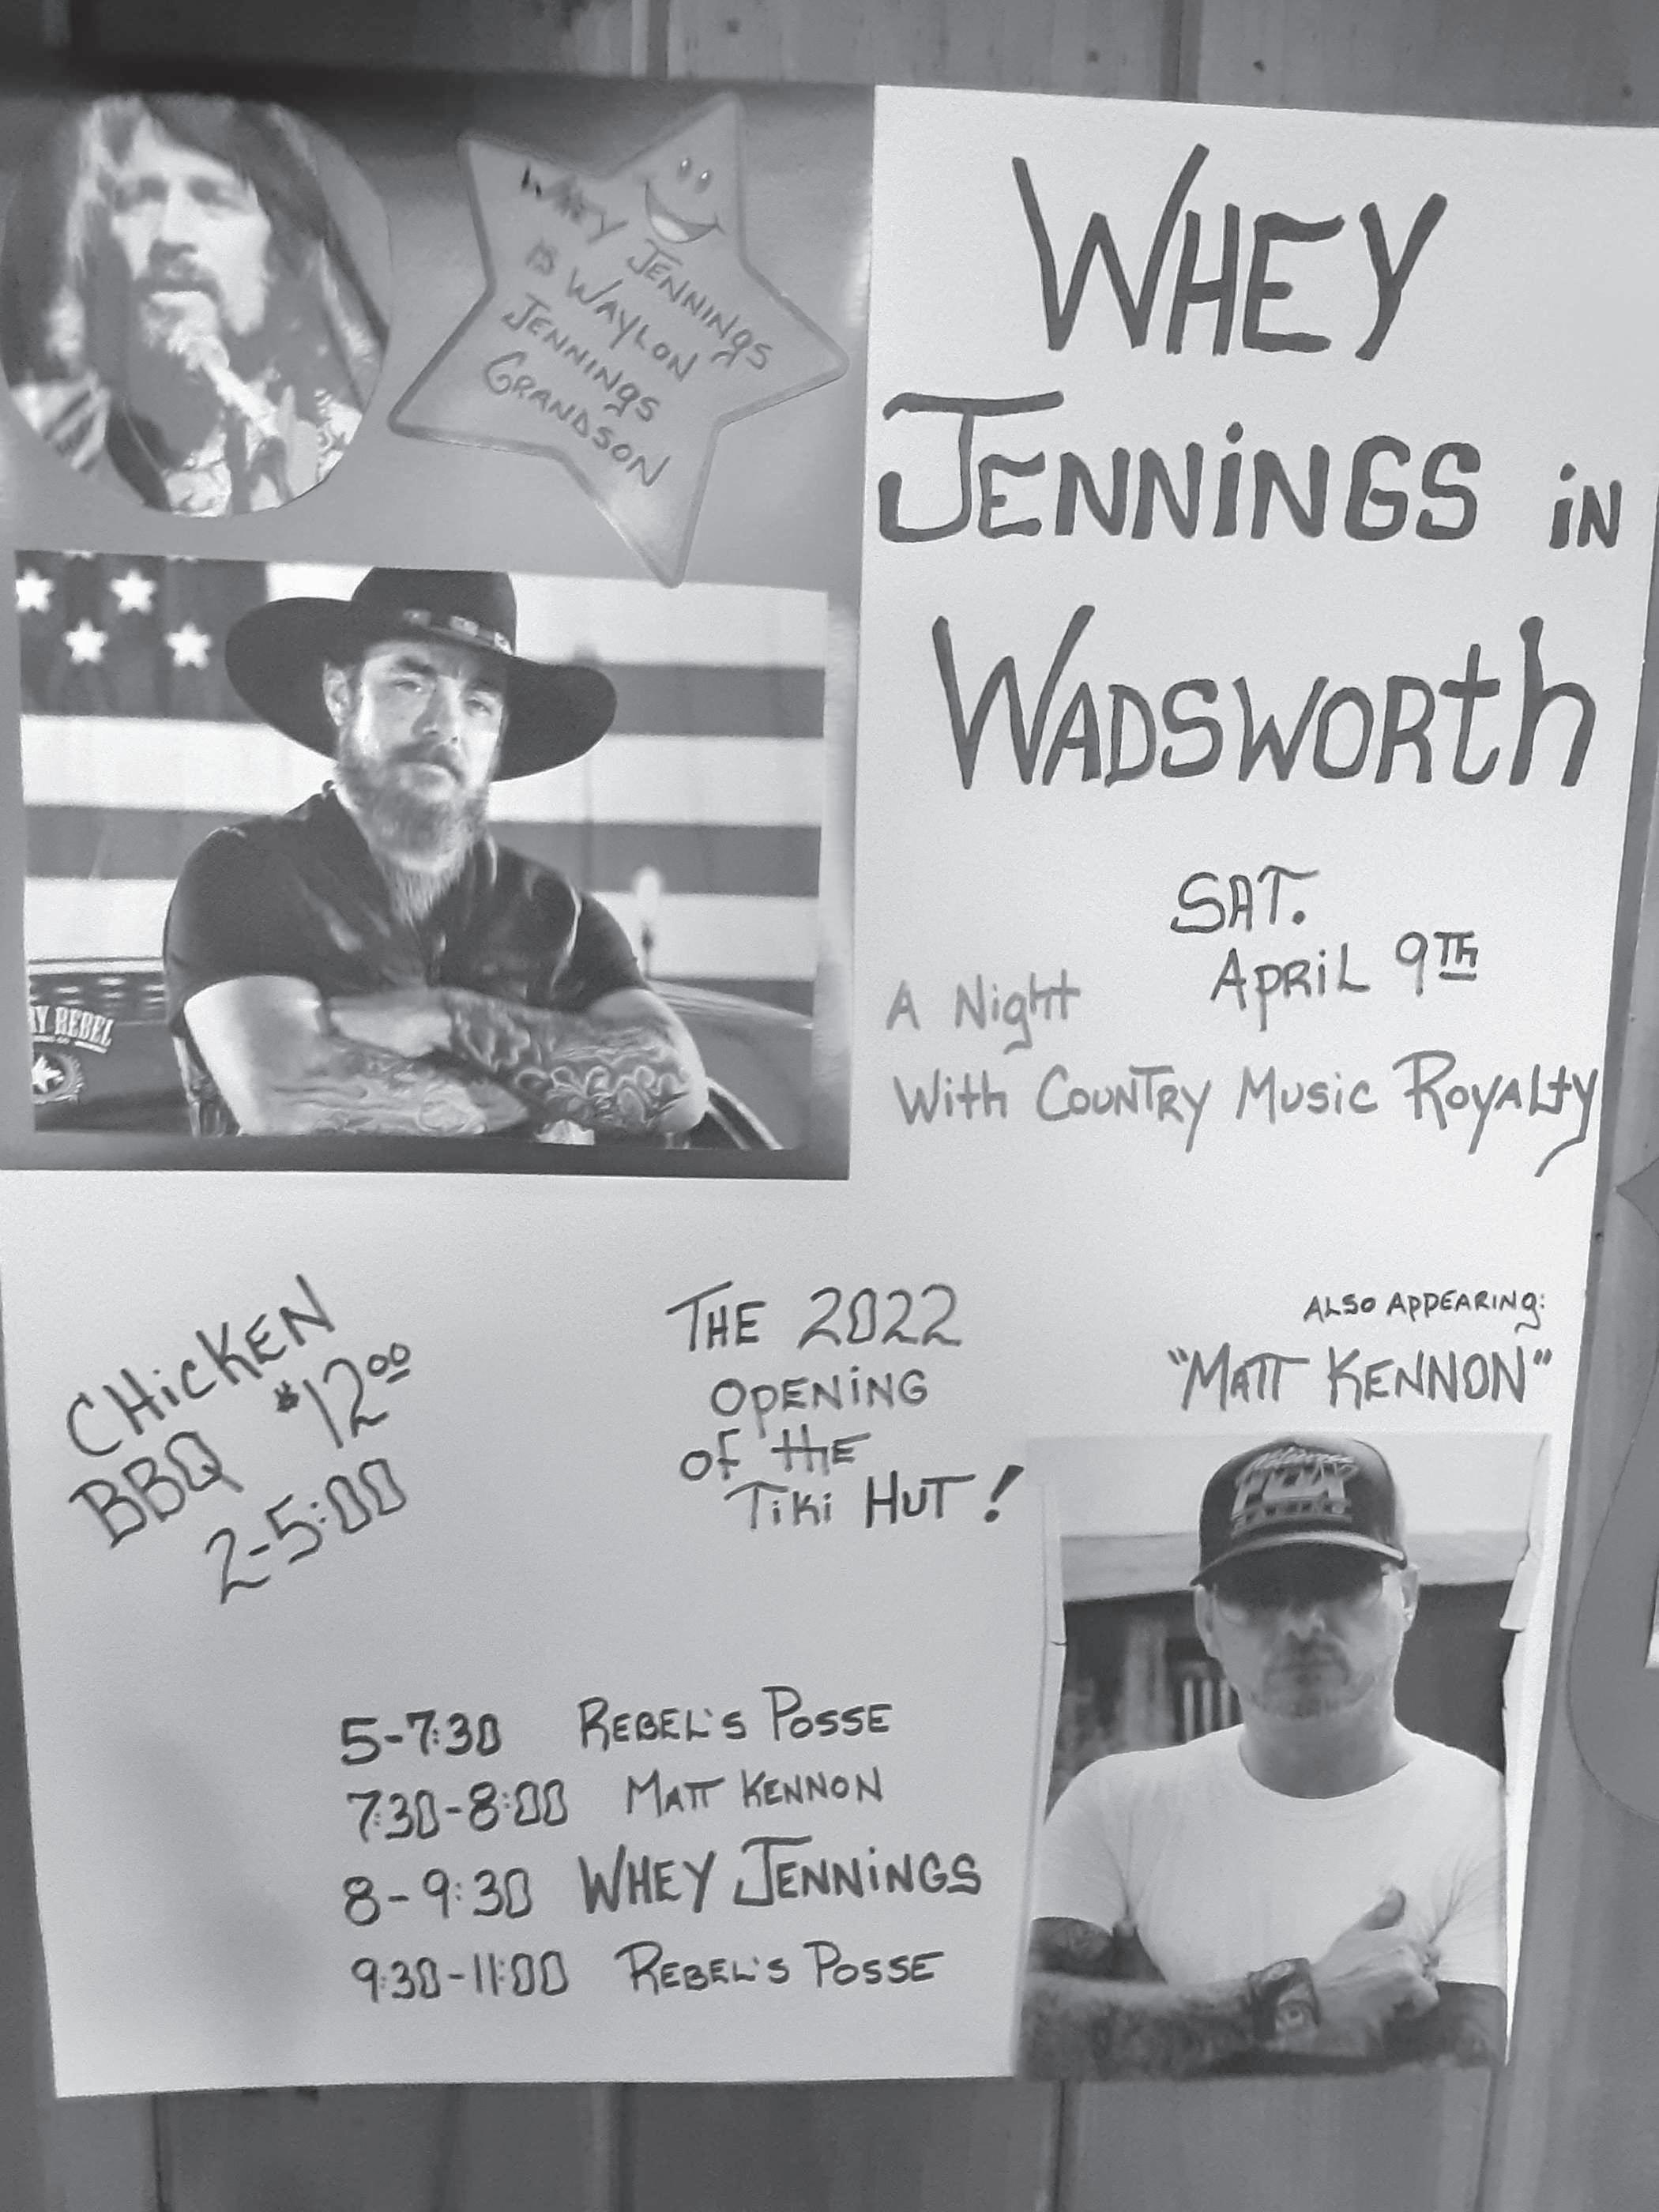 WHEY JENNINGS
IS WAYLON
JENNINGS
GRANDSON
WHEY
JENNINGS IN
WADSWORTH
SAT.
APRIL 9TH
A Night
With Country Music Royalty
RY REBEL
CHICKEN
BBQ $12.00
2-5:00
THE 2022
OPENING
OF THE
TIKI HUT!
ALSO APPEARING:
"MATT KENNON"
5-7:30 REBEL'S POSSE
7:30-8:00 MATT KENNON
8-9:30 WHEY JENNINGS
9:30-11:00 REBEL'S POSSE